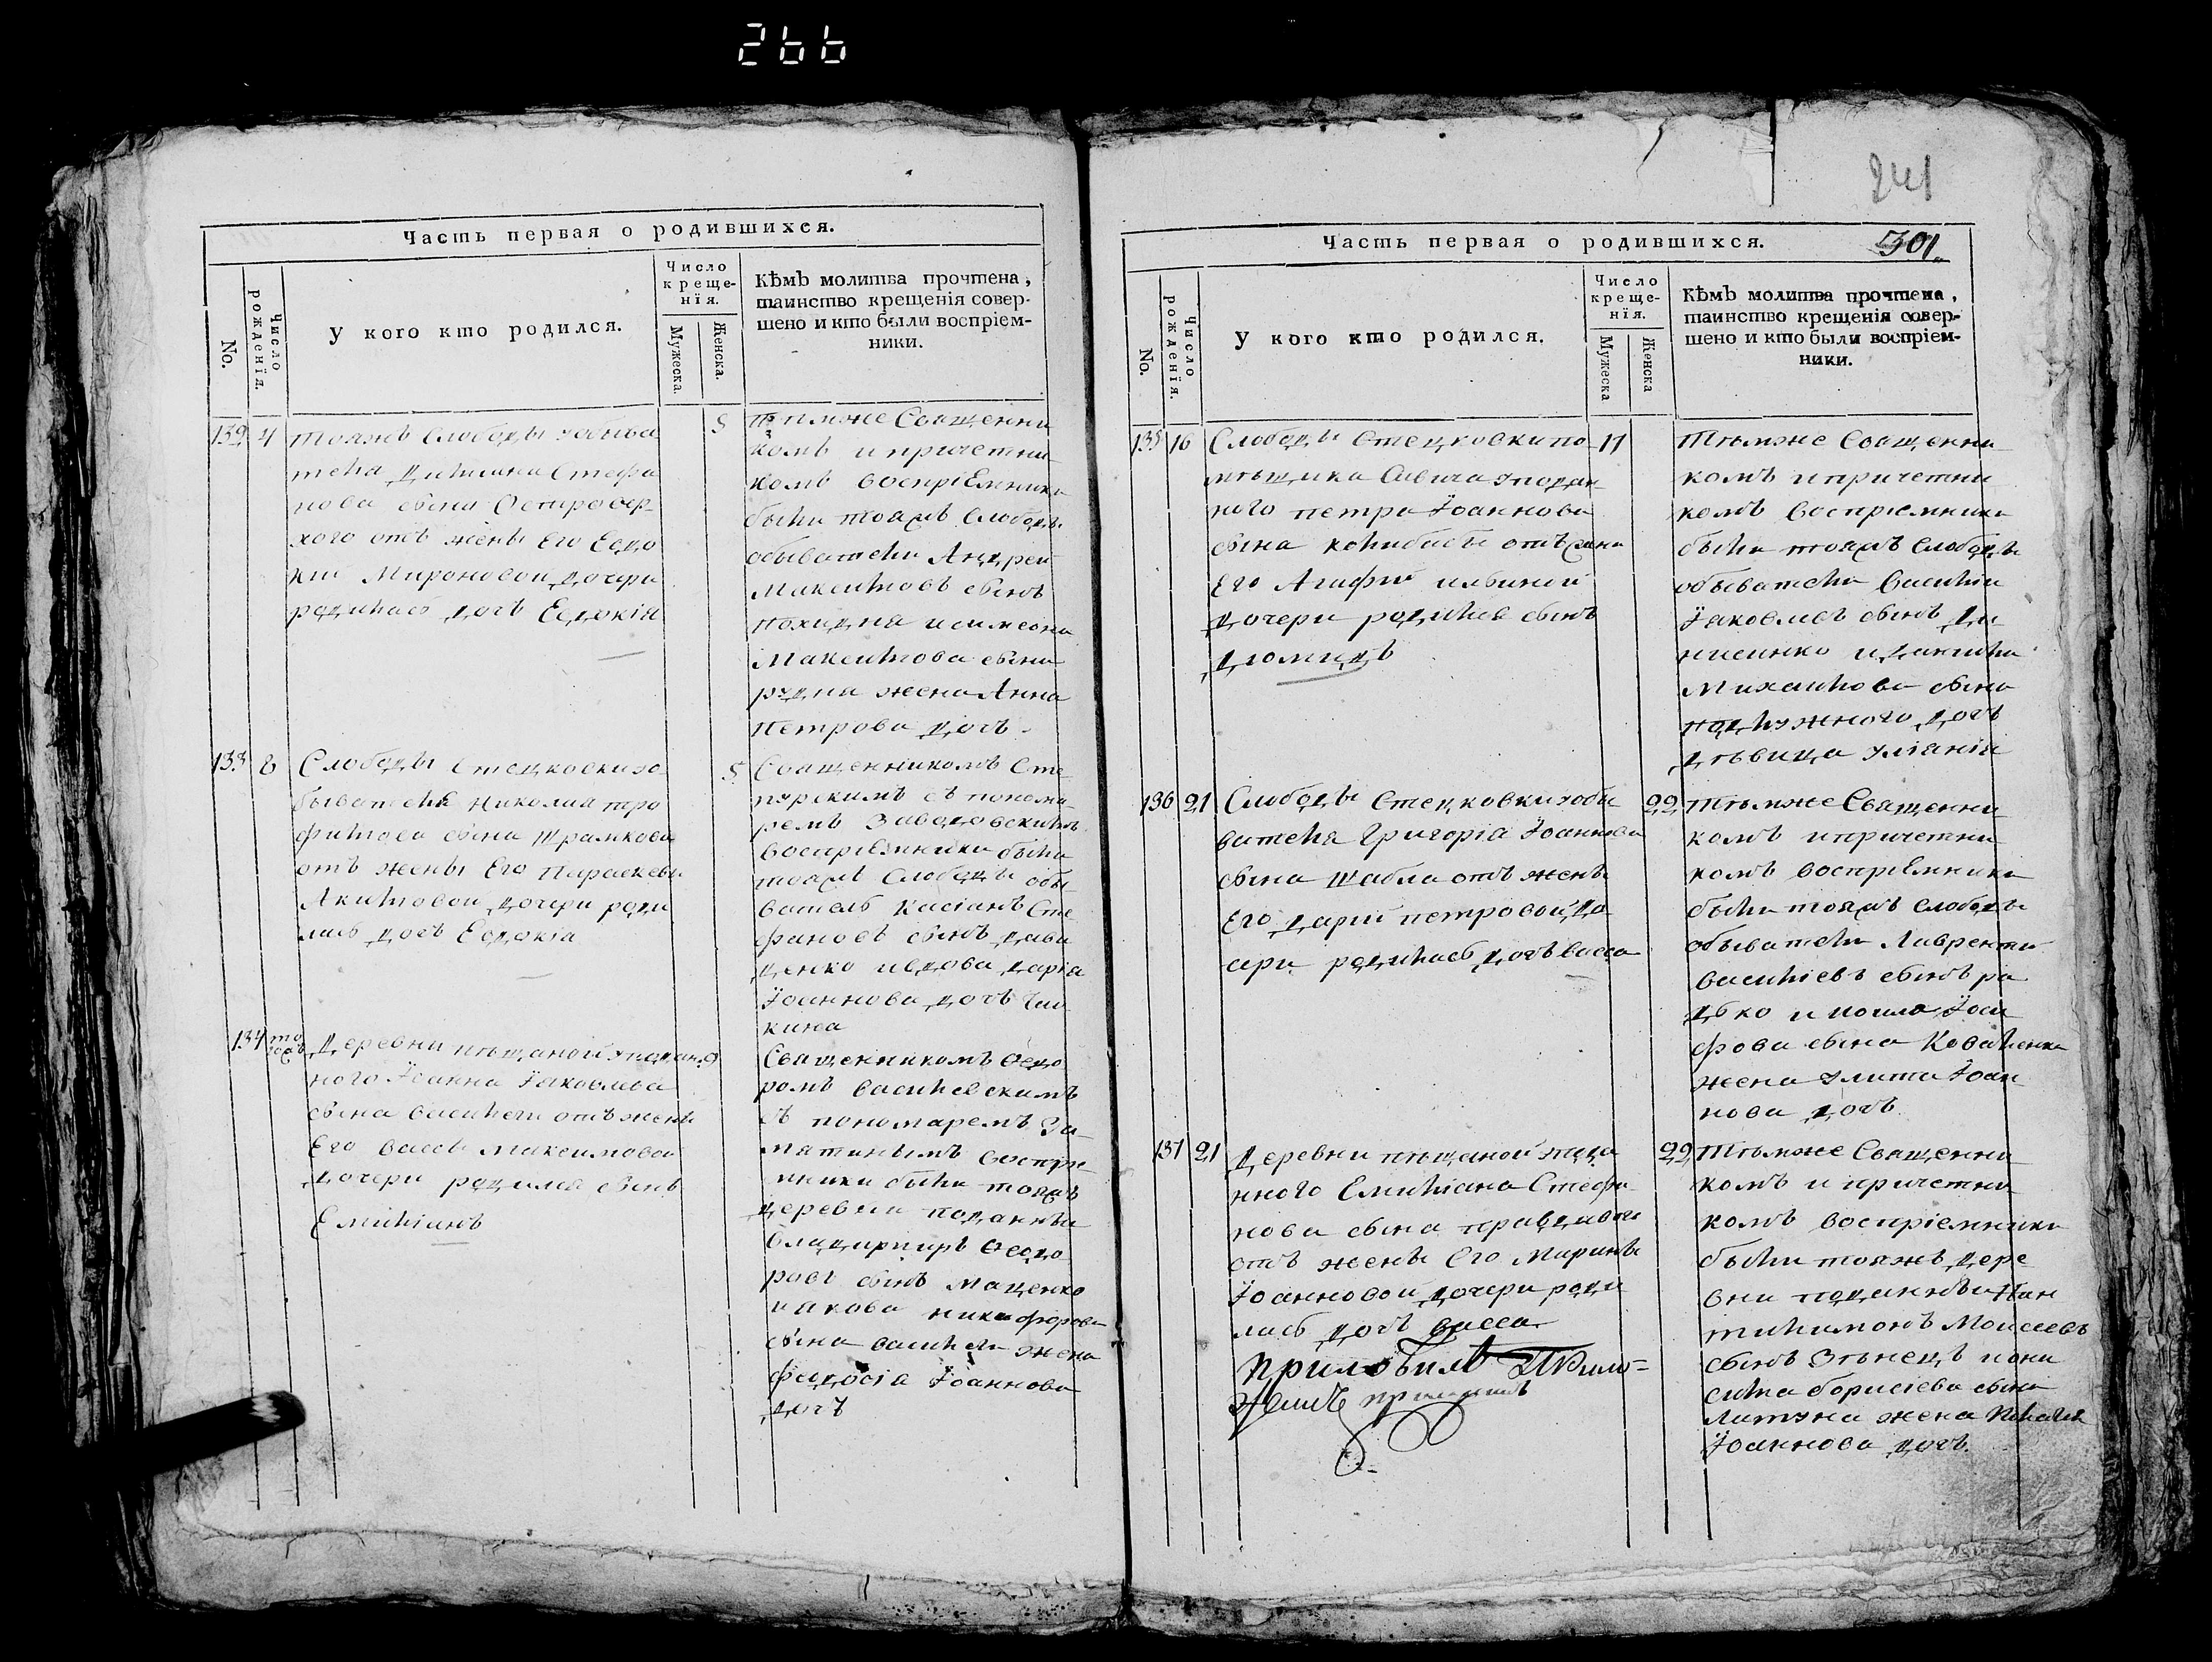 266
Часть первая о родившихся.
No.
Число рожденїя.
У кого кто родился.
Число креще-нїя.
Мужеска
Женска.
Кѣмъ молитва прочтена,
таинство крещенія совер-
шено и кто были воспріем-
ники.
132 4 5
тояжъ слободы уобыва
теля Данила Стефа
нова сына Островер
хого отъ жены Его Евдо
кіи Мироновой дочери
родилась дочь Евдокія
тѣмже Священни
комъ и причетни
комъ воспріемники
были тояжъ слободы
обыватели Андрей
Максимовъ сынъ
и симеона
Максимова сына
жена Анна
Петрова дочь
133 5
Слободы Стецковки уо
бывателя Николая тро
фимова сына
отъ жены Его Параскевы
Акимовой дочери роди
лась дочь Евдокіа
Священникомъ Сте
съ понома
ремъ
воспріемники были
тояжъ слободы обы
ватель Касіанъ Сте
фановъ сынъ дави
денко и вдова дарія
Іоаннова дочь
134 тогожъ 9
Деревни пѣщаной уподан
ного Іоанна Іаковлева
сына отъ жены
Его вассы максимовой
дочери родился сынъ
Емиліанъ
Священникомъ Ѳедо
ромъ василевскимъ
съ пономаремъ За
мятинымъ воспріе
мники были тояжъ
деревни поданныи
владимиръ Ѳеодо
ровъ сынъ маценко
иакова никифорова
сына жена
феодосіа Іоаннова
дочь
241
Часть первая о родившихся.
301.
No.
Число рожденїя.
У кого кто родился.
Число креще-нїя.
Мужеска
Женска
Кѣмъ молитва прочтена,
таинство крещенія совер-
шено и кто были воспріем-
ники.
135 16 17
Слободы Стецковки по
мѣщика Савича уподан
ного петра Іоаннова
сына отъ жены
Его Агафіи ильиной
дочери родился сынъ
Діомидъ
Тѣмже Священни
комъ и причетни
комъ воспріемники
были тояжъ слободы
обыватели василій
Іаковлевъ сынъ Де
нисенко и данила
Михаилова сына
подлужного дочь
дѣвица уліанія
136 21 22
Слободы Стецковки уобы
вателя Григоріа Іоаннова
сына Шабла отъ жены
Его дарій петровой до
чери родилась дочь васса
Тѣмже Священни
комъ и причетни
комъ воспріемники
были тояжъ слободы
обыватели Лаврентій
василіевъ сынъ ра
дько и Іоси
фова сына Коваленка
жена улита Іоан
нова дочь
137 21 22
Деревни пѣщаной упода
нного Емиліана Стефа
нова сына правдивого
отъ жены Его Марины
Іоанновой дочери роди
лась дочь васса
Тѣмже Священни
комъ и причетни
комъ воспріемники
были тояжъ дере
вни поданныи Пан
тилимонъ Моисеевъ
сынъ
борисіева сына
жена
Іоаннова дочь